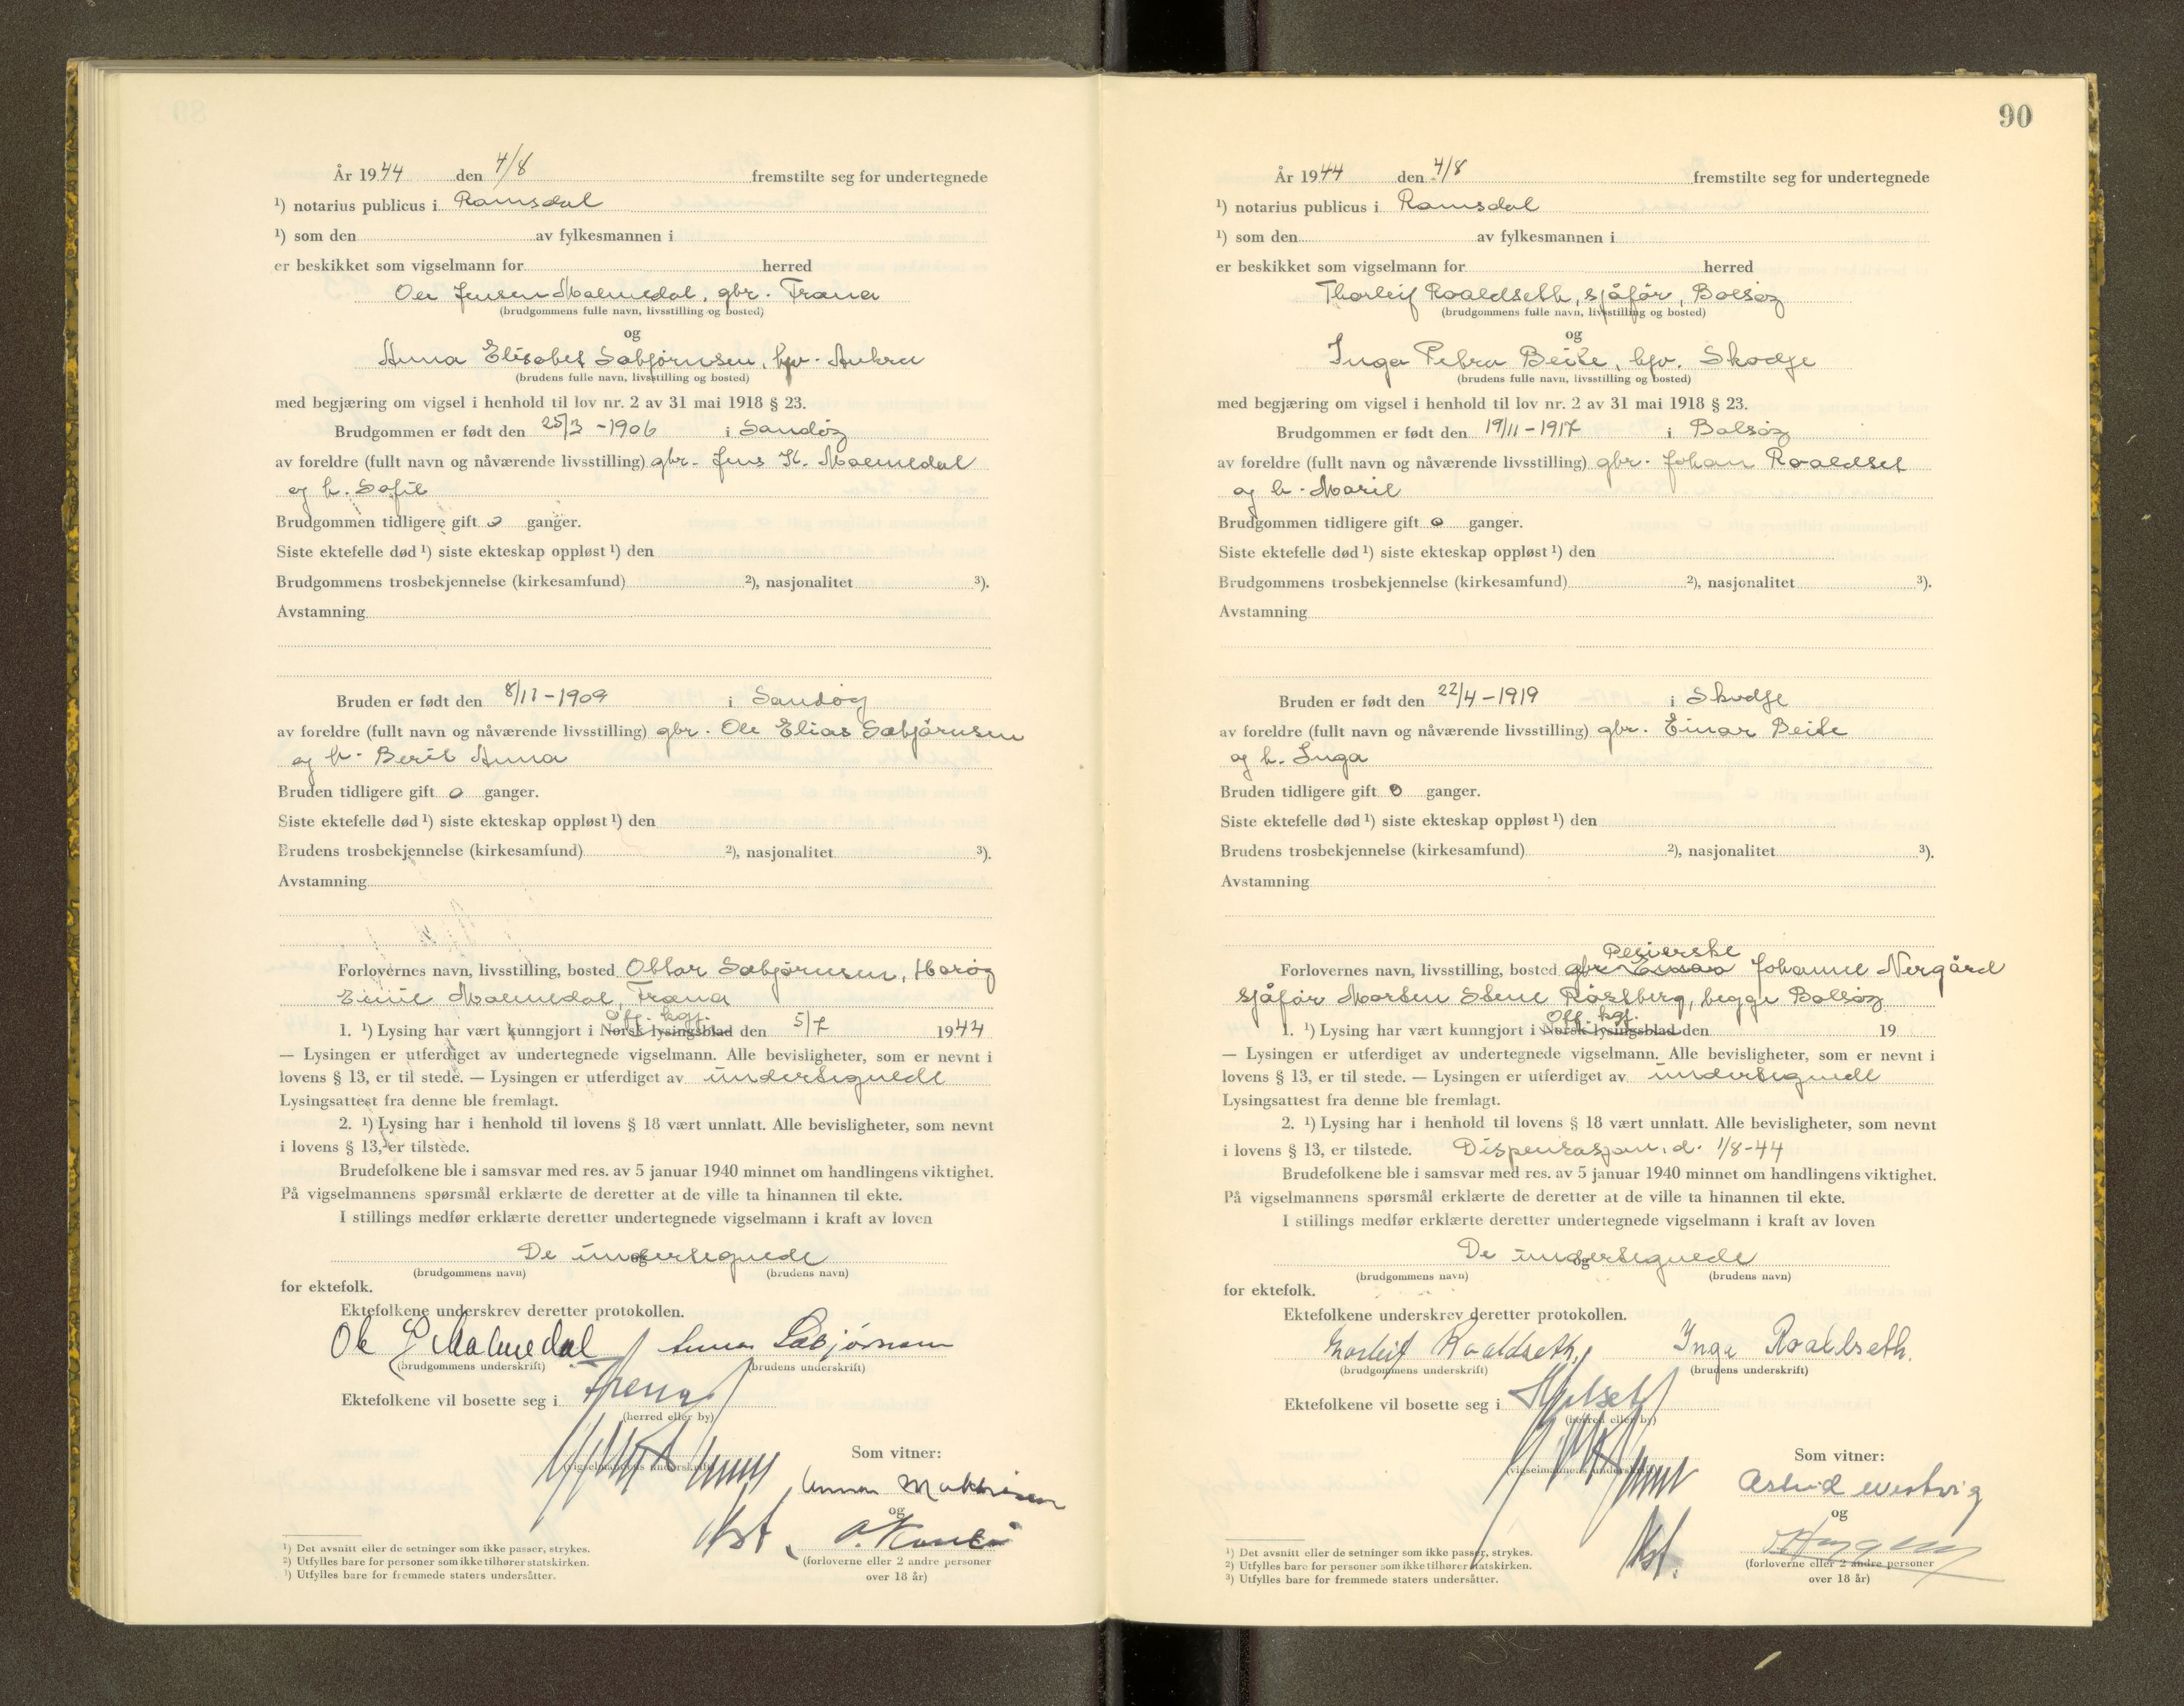 År 1944 den 4/8 fremstilte seg for undertegnede
¹) notarius publicus i Romsdal
¹) som den av fylkesmannen i
er beskikket som vigselmann for herred
Ole Jensen Malmedal, gbr. Fræna
(brudgommens fulle navn, livsstilling og bosted)
og
Anna Elisabet Sæbjørnsen, hjv. Aukra
(brudens fulle navn, livsstilling og bosted)
med begjæring om vigsel i henhold til lov nr. 2 av 31 mai 1918 § 23.
Brudgommen er født den 25/3 - 1906 i Sandøy
av foreldre (fullt navn og nåværende livsstilling) gbr. Jens K. Malmedal
og h. Sofie
Brudgommen tidligere gift 0 ganger.
Siste ektefelle død ¹) siste ekteskap oppløst ¹) den
Brudgommens trosbekjennelse (kirkesamfund) ²), nasjonalitet ³).
Avstamning
Bruden er født den 8/11 - 1909 i Sandøy
av foreldre (fullt navn og nåværende livsstilling) gbr. Ole Elias Sæbjørnsen
og h. Berit Anna
Bruden tidligere gift 0 ganger.
Siste ektefelle død ¹) siste ekteskap oppløst ¹) den
Brudens trosbekjennelse (kirkesamfund) ²), nasjonalitet ³).
Avstamning
Forlovernes navn, livsstilling, bosted Ottar Sæbjørnsen, Harøy
Emil Malmedal, Fræna
Off. kgj.
1. ¹) Lysing har vært kunngjort i Norsk lysingsblad den 5/7 1944
— Lysingen er utferdiget av undertegnede vigselmann. Alle bevisligheter, som er nevnt i
lovens § 13, er til stede. — Lysingen er utferdiget av undertegnede
Lysingsattest fra denne ble fremlagt.
2. ¹) Lysing har i henhold til lovens § 18 vært unnlatt. Alle bevisligheter, som nevnt
i lovens § 13, er tilstede.
Brudefolkene ble i samsvar med res. av 5 januar 1940 minnet om handlingens viktighet.
På vigselmannens spørsmål erklærte de deretter at de ville ta hinannen til ekte.
I stillings medfør erklærte deretter undertegnede vigselmann i kraft av loven
De undertegnede
og
(brudgommens navn) (brudens navn)
for ektefolk.
Ektefolkene underskrev deretter protokollen.
Ole J Malmedal Anna Sæbjørnsen
(brudgommens underskrift) (brudens underskrift)
Ektefolkene vil bosette seg i Frena
(herred eller by)
Som vitner:
(vigselmannens underskrift)
Anna
og
Kst.
(forloverne eller 2 andre personer
over 18 år)
¹) Det avsnitt eller de setninger som ikke passer, strykes.
²) Utfylles bare for personer som ikke tilhører statskirken.
³) Utfylles bare for fremmede staters undersåtter.
90
År 1944 den 4/8 fremstilte seg for undertegnede
¹) notarius publicus i Romsdal
¹) som den av fylkesmannen i
er beskikket som vigselmann for herred
Thorleif Roaldseth, sjåfør, Bolsøy
(brudgommens fulle navn, livsstilling og bosted)
og
Inga Petra Beite, hjv. Skodje
(brudens fulle navn, livsstilling og bosted)
med begjæring om vigsel i henhold til lov nr. 2 av 31 mai 1918 § 23.
Brudgommen er født den 19/11 - 1917 i Bolsøy
av foreldre (fullt navn og nåværende livsstilling) gbr. Johan Roaldset
og h. Marit
Brudgommen tidligere gift 0 ganger.
Siste ektefelle død ¹) siste ekteskap oppløst ¹) den
Brudgommens trosbekjennelse (kirkesamfund) ²), nasjonalitet ³).
Avstamning
Bruden er født den 22/4 - 1919 i Skodje
av foreldre (fullt navn og nåværende livsstilling) gbr. Einar Beite
og h. Inga
Bruden tidligere gift 0 ganger.
Siste ektefelle død ¹) siste ekteskap oppløst ¹) den
Brudens trosbekjennelse (kirkesamfund) ²), nasjonalitet ³).
Avstamning
Forlovernes navn, livsstilling, bosted gbr Einar Johanne Nergård
sjåfør Morten Stene Røstberg, begge Bolsøy
Off. kgj.
1. ¹) Lysing har vært kunngjort i Norsk lysingsblad den 19
— Lysingen er utferdiget av undertegnede vigselmann. Alle bevisligheter, som er nevnt i
lovens § 13, er til stede. — Lysingen er utferdiget av undertegnede
Lysingsattest fra denne ble fremlagt.
2. ¹) Lysing har i henhold til lovens § 18 vært unnlatt. Alle bevisligheter, som nevnt
i lovens § 13, er tilstede. Dispensasjon. d. 1/8-44
Brudefolkene ble i samsvar med res. av 5 januar 1940 minnet om handlingens viktighet.
På vigselmannens spørsmål erklærte de deretter at de ville ta hinannen til ekte.
I stillings medfør erklærte deretter undertegnede vigselmann i kraft av loven
De undertegnede
og
(brudgommens navn) (brudens navn)
for ektefolk.
Ektefolkene underskrev deretter protokollen.
Torleif Roaldseth. Inga Roaldseth.
(brudgommens underskrift) (brudens underskrift)
Ektefolkene vil bosette seg i Hjelset
(herred eller by)
Som vitner:
(vigselmannens underskrift)
Astrid Westvig
og
Kst.
(forloverne eller 2 andre personer
over 18 år)
¹) Det avsnitt eller de setninger som ikke passer, strykes.
²) Utfylles bare for personer som ikke tilhører statskirken.
³) Utfylles bare for fremmede staters undersåtter.